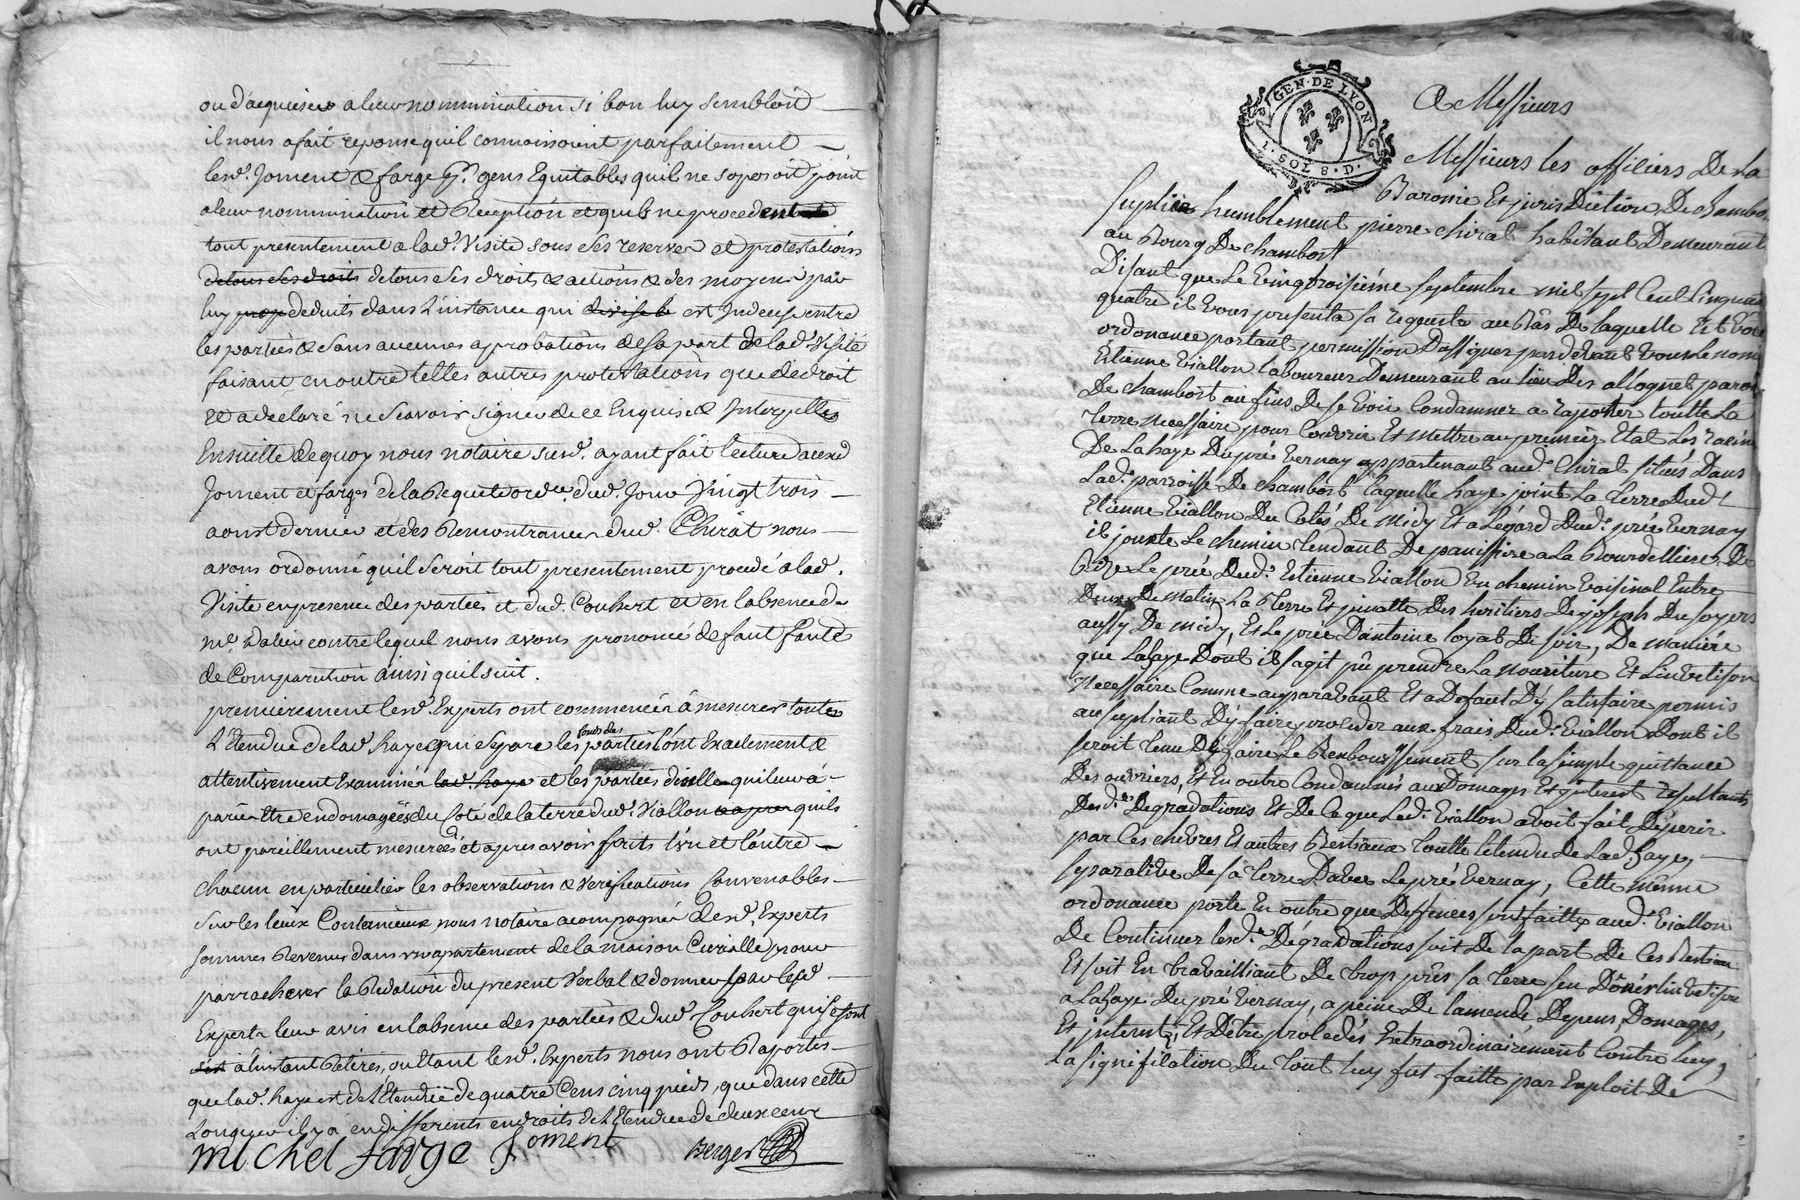 ou d'acquiescer a leur nommination si bon luy sembloit
il nous a fait reponse qu'il connoissoient parfaitement
lesd. Joment & farge p.r gens Equitables quil ne soposoit point
a leur nommination et Reception et quils ne procedent
tout presentement a lad. Visite sous ses reserves et protestations
de tous ses droits de tous ses droits & actions & des moyens par
luy deduits dans L'instance qui est Indecise entre
les parties & sans aucunes aprobations de sa part de lad. Visite
faisant en outre telles autres protestations que de droit
et a declaré ne scavoir signer de ce Enquis & Interpellé
Ensuitte de quoy nous notaire susd. ayant fait lecture auxd
Joment et farges de la Requete ord.ce dud. Jour Vingt trois
aoust dernier et des Remontrances dud. Chirat nous
avons ordonné quil seroit tout presentement procedé a lad.
Visite en presence des parties et dud. Couhert et en labsence de
m.e contre lequel nous avons prononcé defaut faute
de Comparution ainsi quil suit.
premierement lesd. Experts ont commencér à mesurer toute
L'Etendue de lad. haye qui separe les fonds des parties l'ont Exactement &
attentivement Examinér lad. haye et les parties d'icelle qui leur a
parû Etre endomagées du Coté de la terre dud. Viallon quils
ont pareillement mesurées et apres avoir faits l'un et l'autre
chacun en particulier les observations & Verifications Convenables
sur les lieux Contentieux nous notaire acompagnér desd. Experts
sommes Revenus dans un apartement de la maison Curialle pour
parrachever la Redation du present Verbal & donner par lesd.
Experts leur avis en labsence des parties & dud. Couhert qui se sont
a linstant Retirés, ou Etant lesd. Experts nous ont Raportes
que lad. haye est de L'Etendüe de quatre Cens cinq pieds, que dans cette
Longueur il y a en differents endroits de L'Etendue de deux cens
michel farge Joment Berger
GEN. DE LYON
1. SOL 8. D.
A Messieurs
Messieurs les officiers De La
Baronie Et jurisDiction De chambost
Suplie humblement pierre chirat habitant Demeurant
au Bourg De chambost
Disant que Le Vingtroisiéme septembre mil sept Cent Cinquante
quatre il Vous presenta sa requeste au Bas De laquelle Est Vôtre
ordonance portant permission D'assigner pardevant Vous Le nommé
Etienne Viallon Laboureur Demeurant au lieu Des allognet paroisse
De chambost au fins De se Voir Condamner a raporter toutte La
terre necessaire pour Couvrir Et mettre au premier Etat Les racines
De La haye Du pré Vernay appartenant aud. chirat situés Dans
Lad. parroisse De chambost laquelle haye joint La terre Dud.
Etienne Viallon Du Coté De midy Et a Légard Dud. pré Vernay
il jouxte Le chemin tendant De panissiere a La Bourdelliere De
Bize Le pré Dud. Estienne Viallon Un chemin Voisinal Entre
Deux De matin, La terre Et pinatte Des heritiers De joseph Dufoyers
aussy De midy, Et Le pré D'antoine loyat De soir, De maniére
que La haye Dont il s'agit pû prendre La nouriture Et L'entretison
Necessaire Comme auparavant Et a Defaut D'y satisfaire permis
au supliant D'y faire proceder aux frais Dud. Viallon Dont il
seroit tenu D'y faire Le Renboursement sur la simple quittance
Des ouvriers, Et En outre Condamnés aux Domages Et interest resultants
Desd. Degradations Et De Ce que Led. Viallon avoit fait Déperir
par Ces chevres Et autres Bestiaux toutte Letendu De Lad. haye,
separative De sa terre D'avec Le pré Vernay, Cette même
ordonance porte En outre que Deffences sont faitte aud. Viallon
De Continuer lesd. Dégradations soit De La part De Ces Bestiaux
Et soit En travailliant De trop prês sa terre
a La haye Du pré Vernay, a peine De Lamende Depens, Domages,
Et interest, Et D'être procedés Extraordinairement Contre luy,
La signification Du tout luy fut faitte par Exploit De